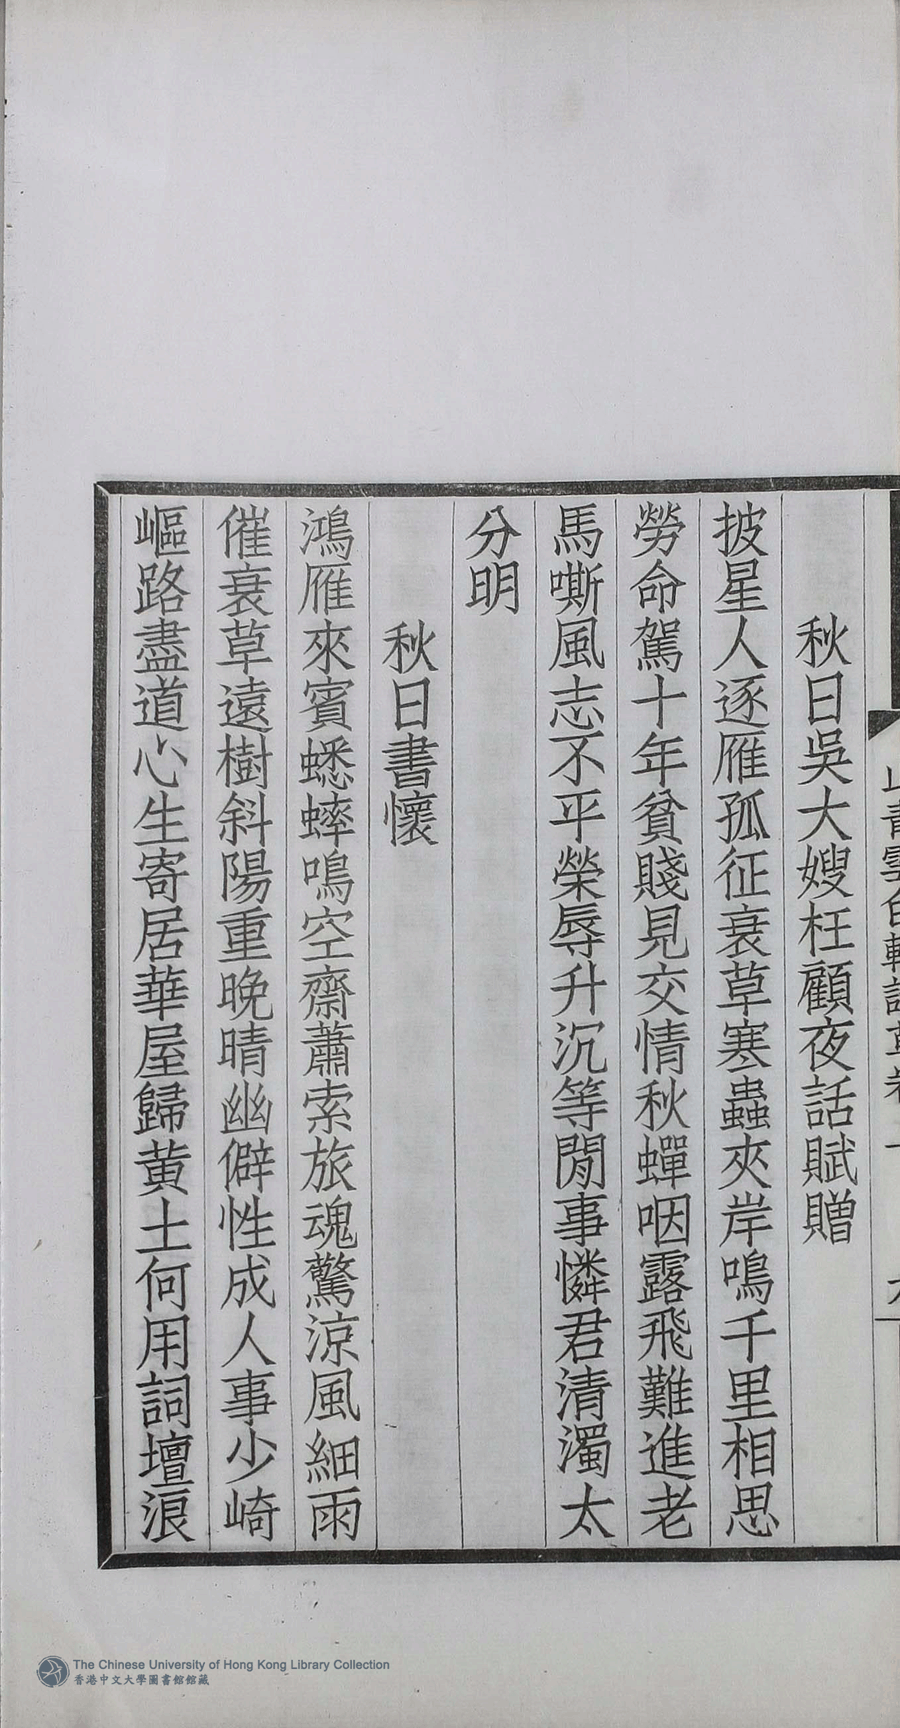 山青雲白軒詩草卷一
秋日吳大嫂枉顧夜話賦贈
披星人逐雁孤征衰草寒蟲夾岸鳴千里相思
勞命駕十年貧賤見交情秋蟬咽露飛難進老
馬嘶風志不平榮辱升沉等閒事憐君清濁太
分明
秋日書懷
鴻雁來賓蟋蟀鳴空齋蕭索旅魂驚涼風細雨
催衰草遠樹斜陽重晚晴幽僻性成人事少崎
嶇路盡道心生寄居華屋歸黃土何用詞壇浪
The Chinese University of Hong Kong Library Collection
香港中文大學圖書館館藏